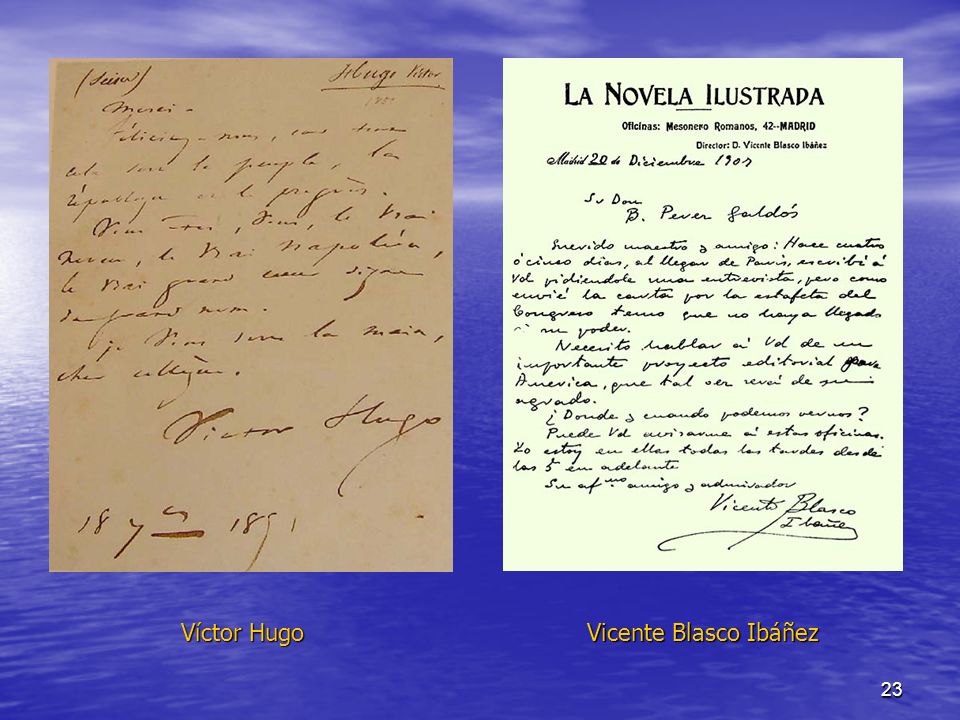 Hugo Victor
Merci -
Félicitez-nous, car tout
cela sert le peuple, la
république et le progrès.
Vous êtes, vous, le vrai
neveu, le vrai Napoléon,
le vrai grand cœur signé
du grand nom.
je vous serre la main,
cher collègue.
Victor Hugo
18 7bre 1851
LA NOVELA ILUSTRADA
Oficinas: Mesonero Romanos, 42--MADRID
Director: D. Vicente Blasco Ibáñez
Madrid 20 de Diciembre 1907
Sr Don
B. Perez Galdós
Querido maestro y amigo: Hace cuatro
ó cinco dias, al llegar de Paris, escribí á
Vd pidiendole una entrevista, pero como
envié la carta por la estafeta del
Congreso temo que no haya llegado
á su poder.
Necesito hablar á Vd de un
importante proyecto editorial para
America, que tal vez será de su
agrado.
¿Donde y cuando podemos vernos?
Puede Vd avisarme á estas oficinas.
Yo estoy en ellas todas las tardes desde
las 5 en adelante
Su afmo amigo y admirador
Vicente Blasco
Ibañez
Víctor Hugo
Vicente Blasco Ibáñez
23